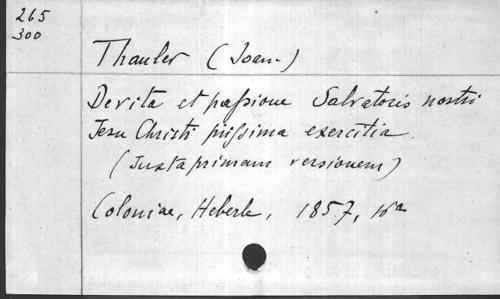 265
300
Thauler (Joan.)
De vita et passione Salvatoris nostri
Jesu Christi piissima exercitia.
(Juxta primam versionem)
Coloniae, Heberle, 1857, 16ª